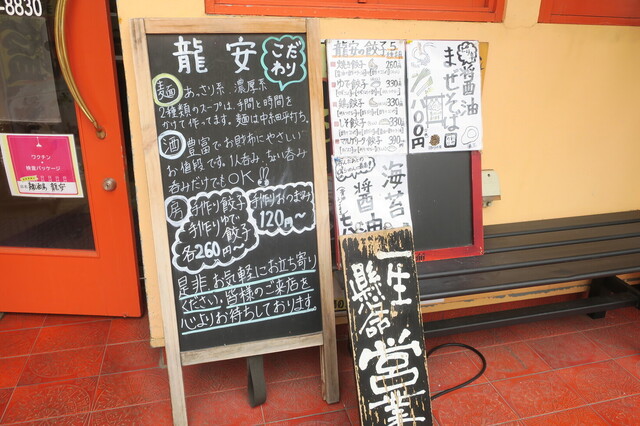 -8830
龍安
こだわり
麺 あっさり系、濃厚系
2種類のスープは、手間と時間を
かけて作ってます。麺は中太平打ち。
酒 豊富でお財布にやさしい
お値段です。1人呑み、ちょい呑み
呑みだけでもOK!!
房 手作り餃子
手作りゆで
餃子
各260円〜
手作りおつまみ
120円〜
是非お気軽にお立ち寄り
ください。皆様のご来店を
心よりお待ちしております。
龍安の餃子
焼き餃子
ゆで餃子 330
330
しそ餃子
醤油
まぜそば
海苔
醤油
一生
懸命
営業
ワクチン
特食パッケージ
龍安